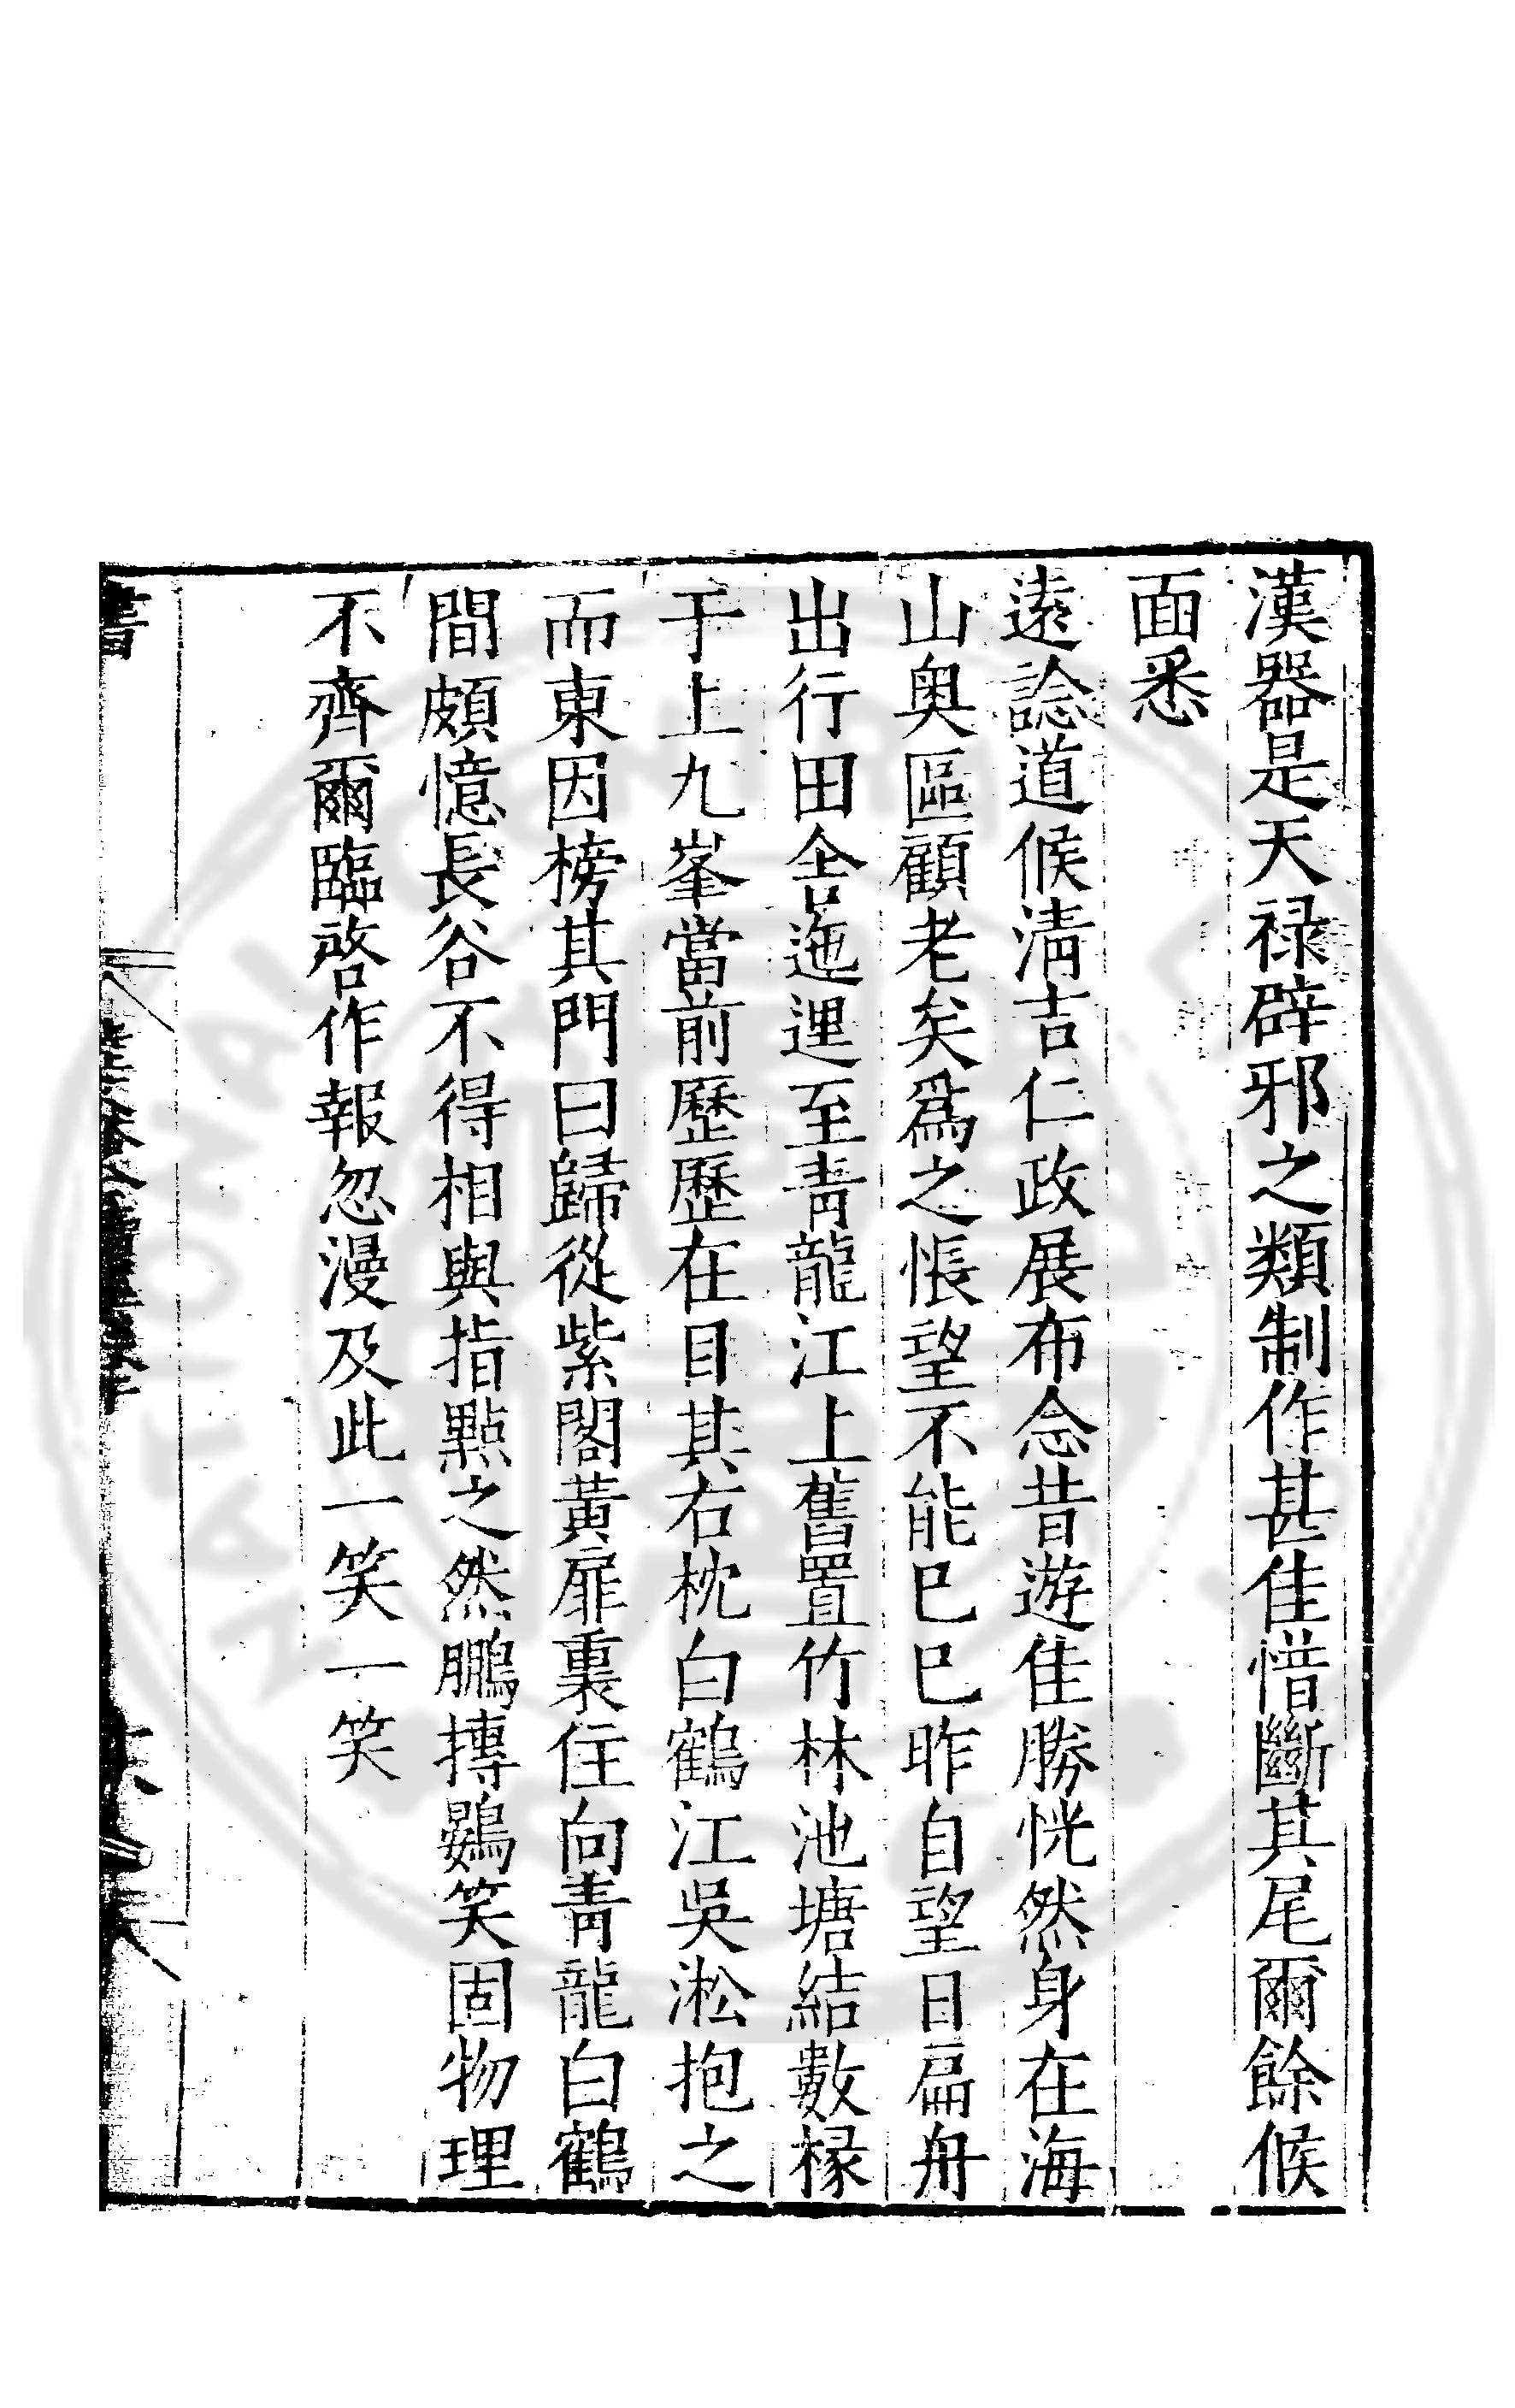 漢器是天禄辟邪之類制作甚佳惜斷其尾爾餘候
面悉
遠諗道候淸吉仁政展布念昔遊佳勝恍然身在海
山奥區顧老矣爲之悵望不能已已昨自望日扁舟
出行田舍迤逕至靑龍江上舊置竹林池塘結數椽
于上九峯當前歷歷在目其右枕白鶴江吳淞抱之
而東因榜其門曰歸從紫閣黃扉裏住向靑龍白鶴
間頗憶長谷不得相與指點之然鵬摶鷃笑固物理
不齊爾臨啓作報忽漫及此一笑一笑
書